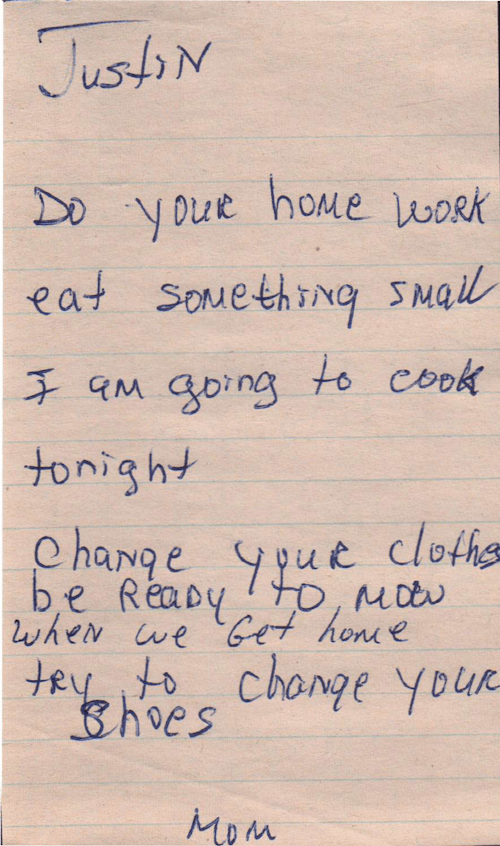 Justin
Do your home work
eat something small
I am going to cook
tonight
Change your clothes
be Ready to mow
when we Get home
try to change your
Shoes
Mom